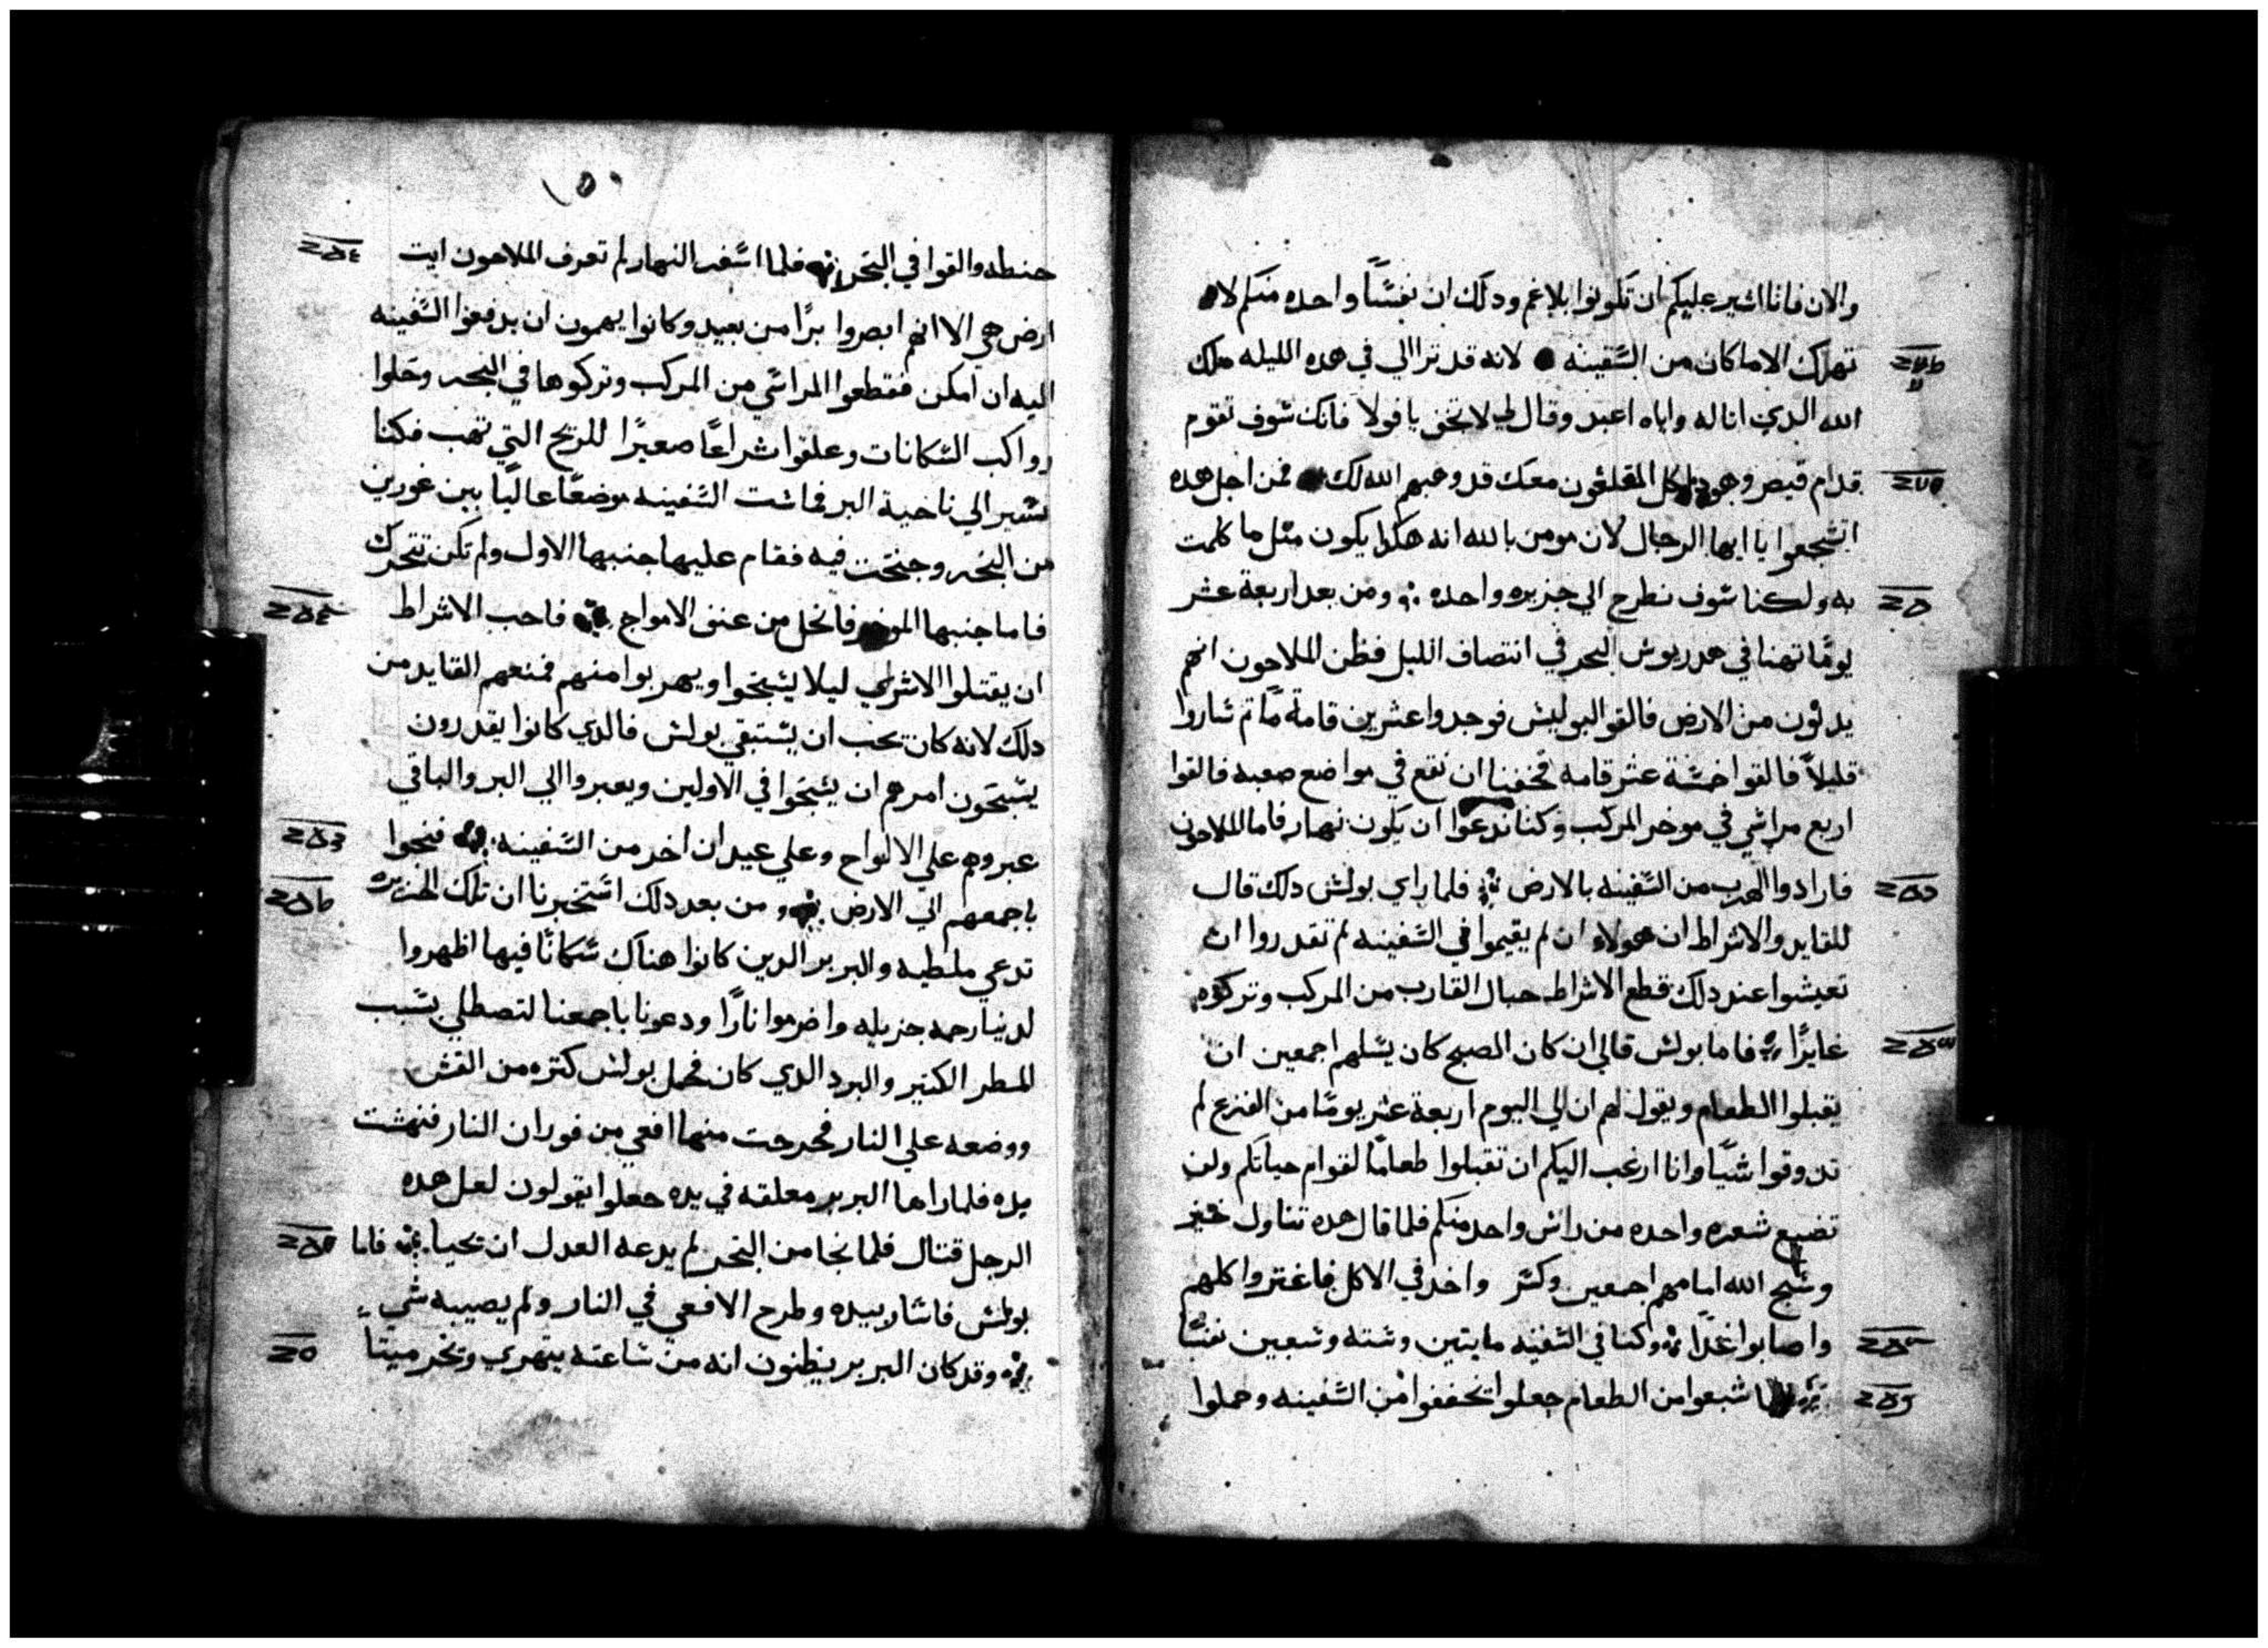 والان فانا اشير عليكم ان تكونوا بلا غم ودلك ان نفسًا واحده منكم لا
تهلك الا ماكان من السفينه لانه قد تراالي في هده الليله ملك
الله الدي اناله واياه اعبد وقال لي لا تخف يا فولا فانك سوف تقوم
قدام قيصر وهودا كل المقلعون معك قد وهبهم الله لك فمن اجل هده
اتشجعوا يا ايها الرجال لان مومن بالله انه هكدا يكون مثل ما كلمت
به ولكنا سوف نطرح الي جزيره واحده ومن بعد اربعة عشر
يومًا تهنا في هدريوس البحر في انتصاف الليل فظن الملاحون انهم
يدنون من الارض فالقوا البوليس فوجدوا عشرين قامة ما تم ساروا
قليلاً فالقوا خمسة عشر قامه فخفنا ان نقع في مواضع صعبه فالقوا
اربع مراسي في موخر المركب وكنا ندعوا ان يكون نهار فاما الملاحون
فارادوا الهرب من السفينه بالارض فلما راي بولس دلك قال
للقايد والاشراط ان هولاء ان لم يقيموا في السفينه لم تقدروا ان
تعيشوا عند دلك قطع الاشراط حبال القارب من المركب وتركوه
غايرًا فاما بولس قالي ان كان الصبح كان يسلهم اجمعين ان
يقبلوا الطعام ويقول لهم ان لي اليوم اربعة عشر يومًا من الفزع لم
تدوقوا شيًا وانا ارغب اليكم ان تقبلوا طعامًا لقوام حياتكم ولن
تضيع شعره واحده من راس واحد منكم فلما قال هده تناول خبز
وسبح الله امامهم اجمعين وكسر واخد في الاكل فاغتروا كلهم
واصابوا غدًا وكنا في السفينه مايتين وسته وسبعين نفسًا
شبعوا من الطعام جعلوا تخففوا من السفينه وحملوا
١٥٠
حنطه والقوا في البحر فلما اسفر النهار لم تعرف الملاحون ايت
ارض هي الا انهم ابصروا برًا من بعيد وكانوا يهمون ان يدفعوا السفينه
اليه ان امكن فقطعوا المراسي من المركب وتركوها في البحر وحلوا
رواكب السكانات وعلقوا شراعًا صغيرًا للريح التي تهب فكنا
نسير الي ناحية البر فماست السفينه موضعًا عاليًا بين غورين
من البحر وجنحت فيه فقام عليها جنبها الاول ولم تكن تتحرك
فاما جنبها الموخر فانحل من عنف الامواج فاحب الاشراط
ان يقتلوا الاسري ليلا يسبحوا ويهربوا منهم فمنعهم القايد من
دلك لانه كان يحب ان يستبقي بولس فالدي كانوا يقدرون
يسبحون امرهم ان يسبحوا في الاولين ويعبروا الي البر والباقي
عبروهم علي الالواح وعلي عيدان اخر من السفينه فنجوا
باجمعهم الي الارض ومن بعد دلك استخبرنا ان تلك الجزيره
تدعي ملطيه والبربر الدين كانوا هناك سكانًا فيها اظهروا
لدينا رحمه جزيله واضرموا نارًا ودعونا باجمعنا لنصطلي بسبب
المطر الكتير والبرد الدي كان فحمل بولس كتره من القش
ووضعه علي النار فخرجت منها افعي من فوران النار فنهشت
يده فلما راها البربر معلقه في يده جعلوا يقولون لعل هده
الرجل قتال فلما نجا من البحر لم يدعه العدل ان يحيا فاما
بولس فاشار بيده وطرح الافعي في النار ولم يصيبه شي
وقد كان البربر يظنون انه من ساعته يتهري ويخر ميتًا